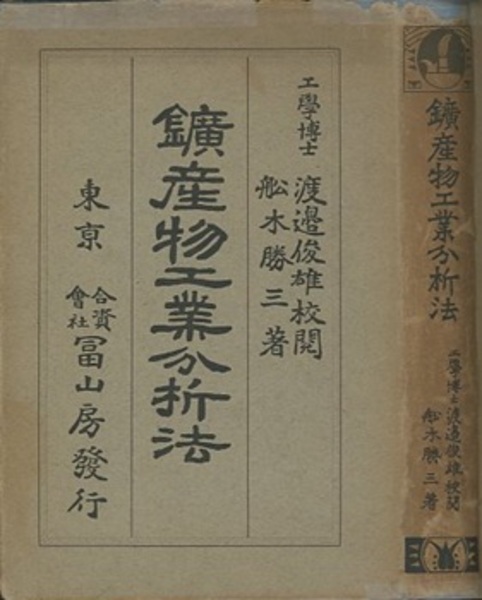 工學博士 渡邊俊雄校閲
舩木勝三著
鑛産物工業分析法
東京 合資會社 冨山房發行
鑛産物工業分析法
工學博士渡邊俊雄校閲
舩木勝三著